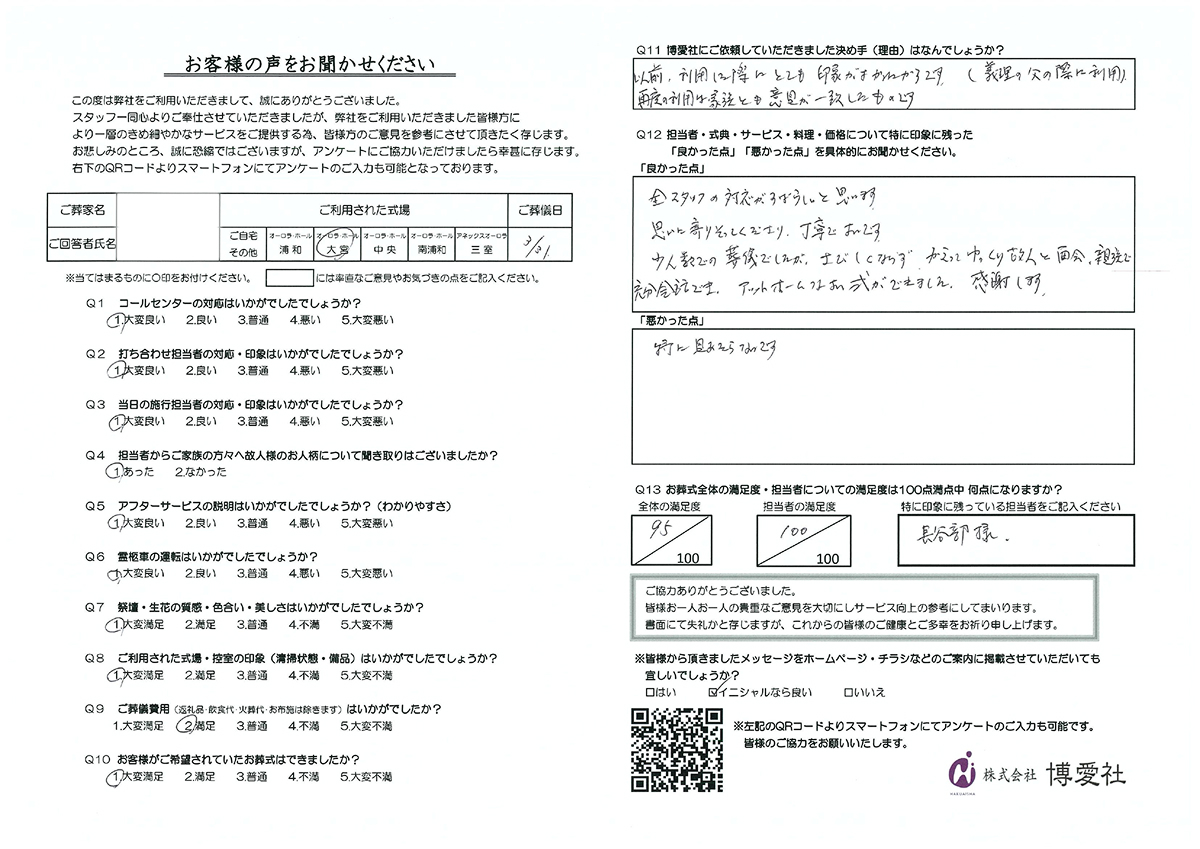 お客様の声をお聞かせください
この度は弊社をご利用いただきまして、誠にありがとうございました。
スタッフ一同心よりご奉仕させていただきましたが、弊社をご利用いただきました皆様方に
より一層のきめ細やかなサービスをご提供する為、皆様方のご意見を参考にさせて頂きたく存じます。
お悲しみのところ、誠に恐縮ではございますが、アンケートにご協力いただけましたら幸甚に存じます。
右下のQRコードよりスマートフォンにてアンケートのご入力も可能となっております。
ご葬家名 ご利用された式場 ご葬儀日
ご回答者氏名 ご自宅 その他 オーロラ・ホール 浦和 オーロラ・ホール 大宮 オーロラ・ホール 中央 オーロラ・ホール 南浦和 アネックスオーロラ 三室 3/31
※当てはまるものに○印をお付けください。 には率直なご意見やお気づきの点をご記入ください。
Q1 コールセンターの対応はいかがでしたでしょうか?
1.大変良い 2.良い 3.普通 4.悪い 5.大変悪い
Q2 打ち合わせ担当者の対応・印象はいかがでしたでしょうか?
1.大変良い 2.良い 3.普通 4.悪い 5.大変悪い
Q3 当日の施行担当者の対応・印象はいかがでしたでしょうか?
1.大変良い 2.良い 3.普通 4.悪い 5.大変悪い
Q4 担当者からご家族の方々へ故人様のお人柄について聞き取りはございましたか?
1.あった 2.なかった
Q5 アフターサービスの説明はいかがでしたでしょうか?(わかりやすさ)
1.大変良い 2.良い 3.普通 4.悪い 5.大変悪い
Q6 霊柩車の運転はいかがでしたでしょうか?
1.大変良い 2.良い 3.普通 4.悪い 5.大変悪い
Q7 祭壇・生花の質感・色合い・美しさはいかがでしたでしょうか?
1.大変満足 2.満足 3.普通 4.不満 5.大変不満
Q8 ご利用された式場・控室の印象(清掃状態・備品)はいかがでしたでしょうか?
1.大変満足 2.満足 3.普通 4.不満 5.大変不満
Q9 ご葬儀費用(返礼品・飲食代・火葬代・お布施は除きます)はいかがでしたか?
1.大変満足 2.満足 3.普通 4.不満 5.大変不満
Q10 お客様がご希望されていたお葬式はできましたか?
1.大変満足 2.満足 3.普通 4.不満 5.大変不満
Q11 博愛社にご依頼していただきました決め手(理由)はなんでしょうか?
以前、利用した際にとても印象がよかったからです (義理の父の際に利用)
再度の利用は家族とも意見が一致したものです
Q12 担当者・式典・サービス・料理・価格について特に印象に残った
「良かった点」「悪かった点」を具体的にお聞かせください。
「良かった点」
全スタッフの対応がすばらしいと思います
思いに寄りそってくださり、丁寧でよいです
少人数での葬儀でしたが、さびしくならず、かえってゆっくり故人と面会、親族で
充分会話でき、アットホームなよい式ができました。感謝します
「悪かった点」
特に見あたらないです
Q13 お葬式全体の満足度・担当者についての満足度は100点満点中 何点になりますか?
全体の満足度 担当者の満足度 特に印象に残っている担当者をご記入ください
95/100 100/100 長谷部様.
ご協力ありがとうございました。
皆様お一人お一人の貴重なご意見を大切にしサービス向上の参考にしてまいります。
書面にて失礼かと存じますが、これからの皆様のご健康とご多幸をお祈り申し上げます。
※皆様から頂きましたメッセージをホームページ・チラシなどのご案内に掲載させていただいても
宜しいでしょうか?
□はい ☑イニシャルなら良い □いいえ
※左記のQRコードよりスマートフォンにてアンケートのご入力も可能です。
皆様のご協力をお願いいたします。
HAKUAISHA
株式会社 博愛社